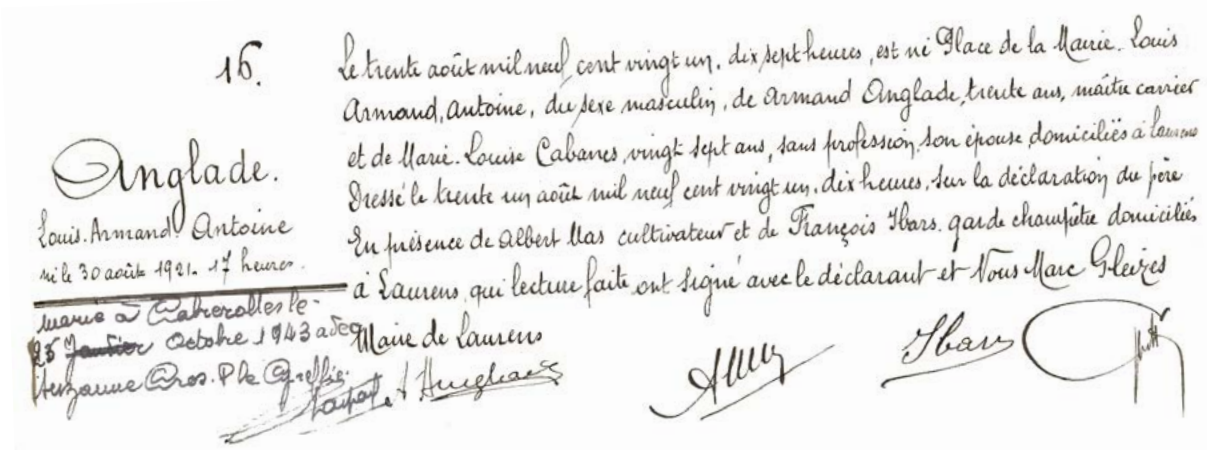 16.
Anglade.
Louis. Armand. Antoine
né le 30 août 1921. 17 heures.
marié à Cabrerolles le
25 Janvier Octobre 1943 avec
Suzanne Cros. P le Greffier
Le trente août mil neuf cent vingt un, dix sept heures, est né Place de la Mairie. Louis
Armand, Antoine, du sexe masculin, de Armand Anglade, trente ans, maître carrier
et de Marie. Louise Cabanes, vingt sept ans, sans profession, son épouse, domiciliés à Laurens
Dressé le trente un août mil neuf cent vingt un, dix heures, sur la déclaration du père
En présence de Albert Mas cultivateur et de François Ibars. garde champêtre domiciliés
à Laurens, qui lecture faite, ont signé avec le déclarant et Nous Marc Gleizes
Maire de Laurens
A Anglade
Ibars